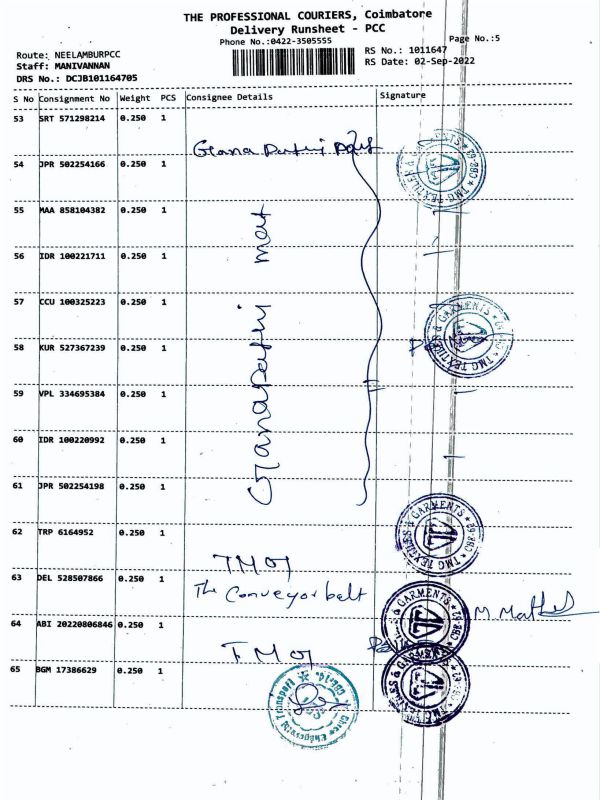 THE PROFESSIONAL COURIERS, Coimbatore
Delivery Runsheet - PCC
Phone No.:0422-3505555
Page No.:5
Route: NEELAMBURPCC
RS No.: 1011647
Staff: MANIVANNAN
RS Date: 02-Sep-2022
DRS No.: DCJB101164705
S No Consignment No Weight PCS Consignee Details Signature
53 SRT 571298214 0.250 1
54 JPR 502254166 0.250 1
55 MAA 858104382 0.250 1
56 IDR 100221711 0.250 1
57 CCU 100325223 0.250 1
58 KUR 527367239 0.250 1
59 VPL 334695384 0.250 1
60 IDR 100220992 0.250 1
61 JPR 502254198 0.250 1
62 TRP 6164952 0.250 1
TMG
63 DEL 528507866 0.250 1
The Conveyor belt
64 ABI 20220806846 0.250 1
65 BGM 17386629 0.250 1
TMG TEXTILES & GARMENTS * CBE-62 *
TMG TEXTILES & GARMENTS * CBE-62 *
TMG TEXTILES & GARMENTS * CBE-62 *